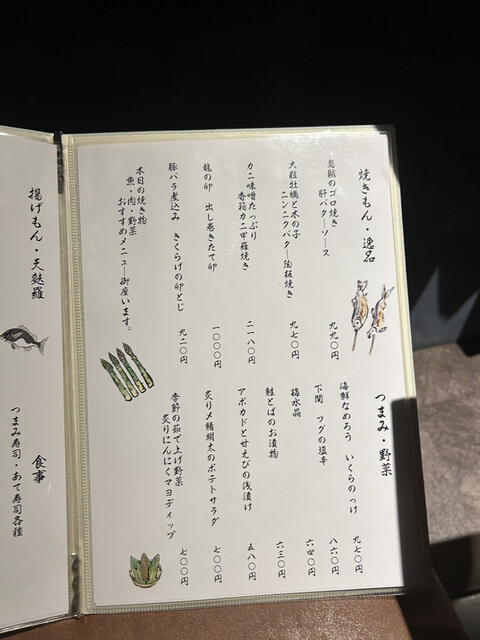 焼きもん・逸品
烏賊のゴロ焼き
肝バターソース
九九〇円
大粒牡蠣と木の子
ニンニクバター陶板焼き
九七〇円
カニ味噌たっぷり
香箱カニ甲羅焼き
二一八〇円
龍の卵 出し巻きたて卵
一〇〇〇円
豚バラ煮込み きくらげの卵とじ
九二〇円
本日の焼き物
魚・肉・野菜
おすすめメニュー御座います。
つまみ・野菜
海鮮なめろう いくらのっけ
九七〇円
下関 フグの塩辛
八六〇円
梅水晶
六四〇円
鮭とばのお漬物
六三〇円
アボカドと甘えびの浅漬け
五八〇円
炙り〆鯖明太のポテトサラダ
七〇〇円
季節の茹で上げ野菜
炙りにんにくマヨディップ
七〇〇円
揚げもん・天麩羅
食事
つまみ寿司・あて寿司各種